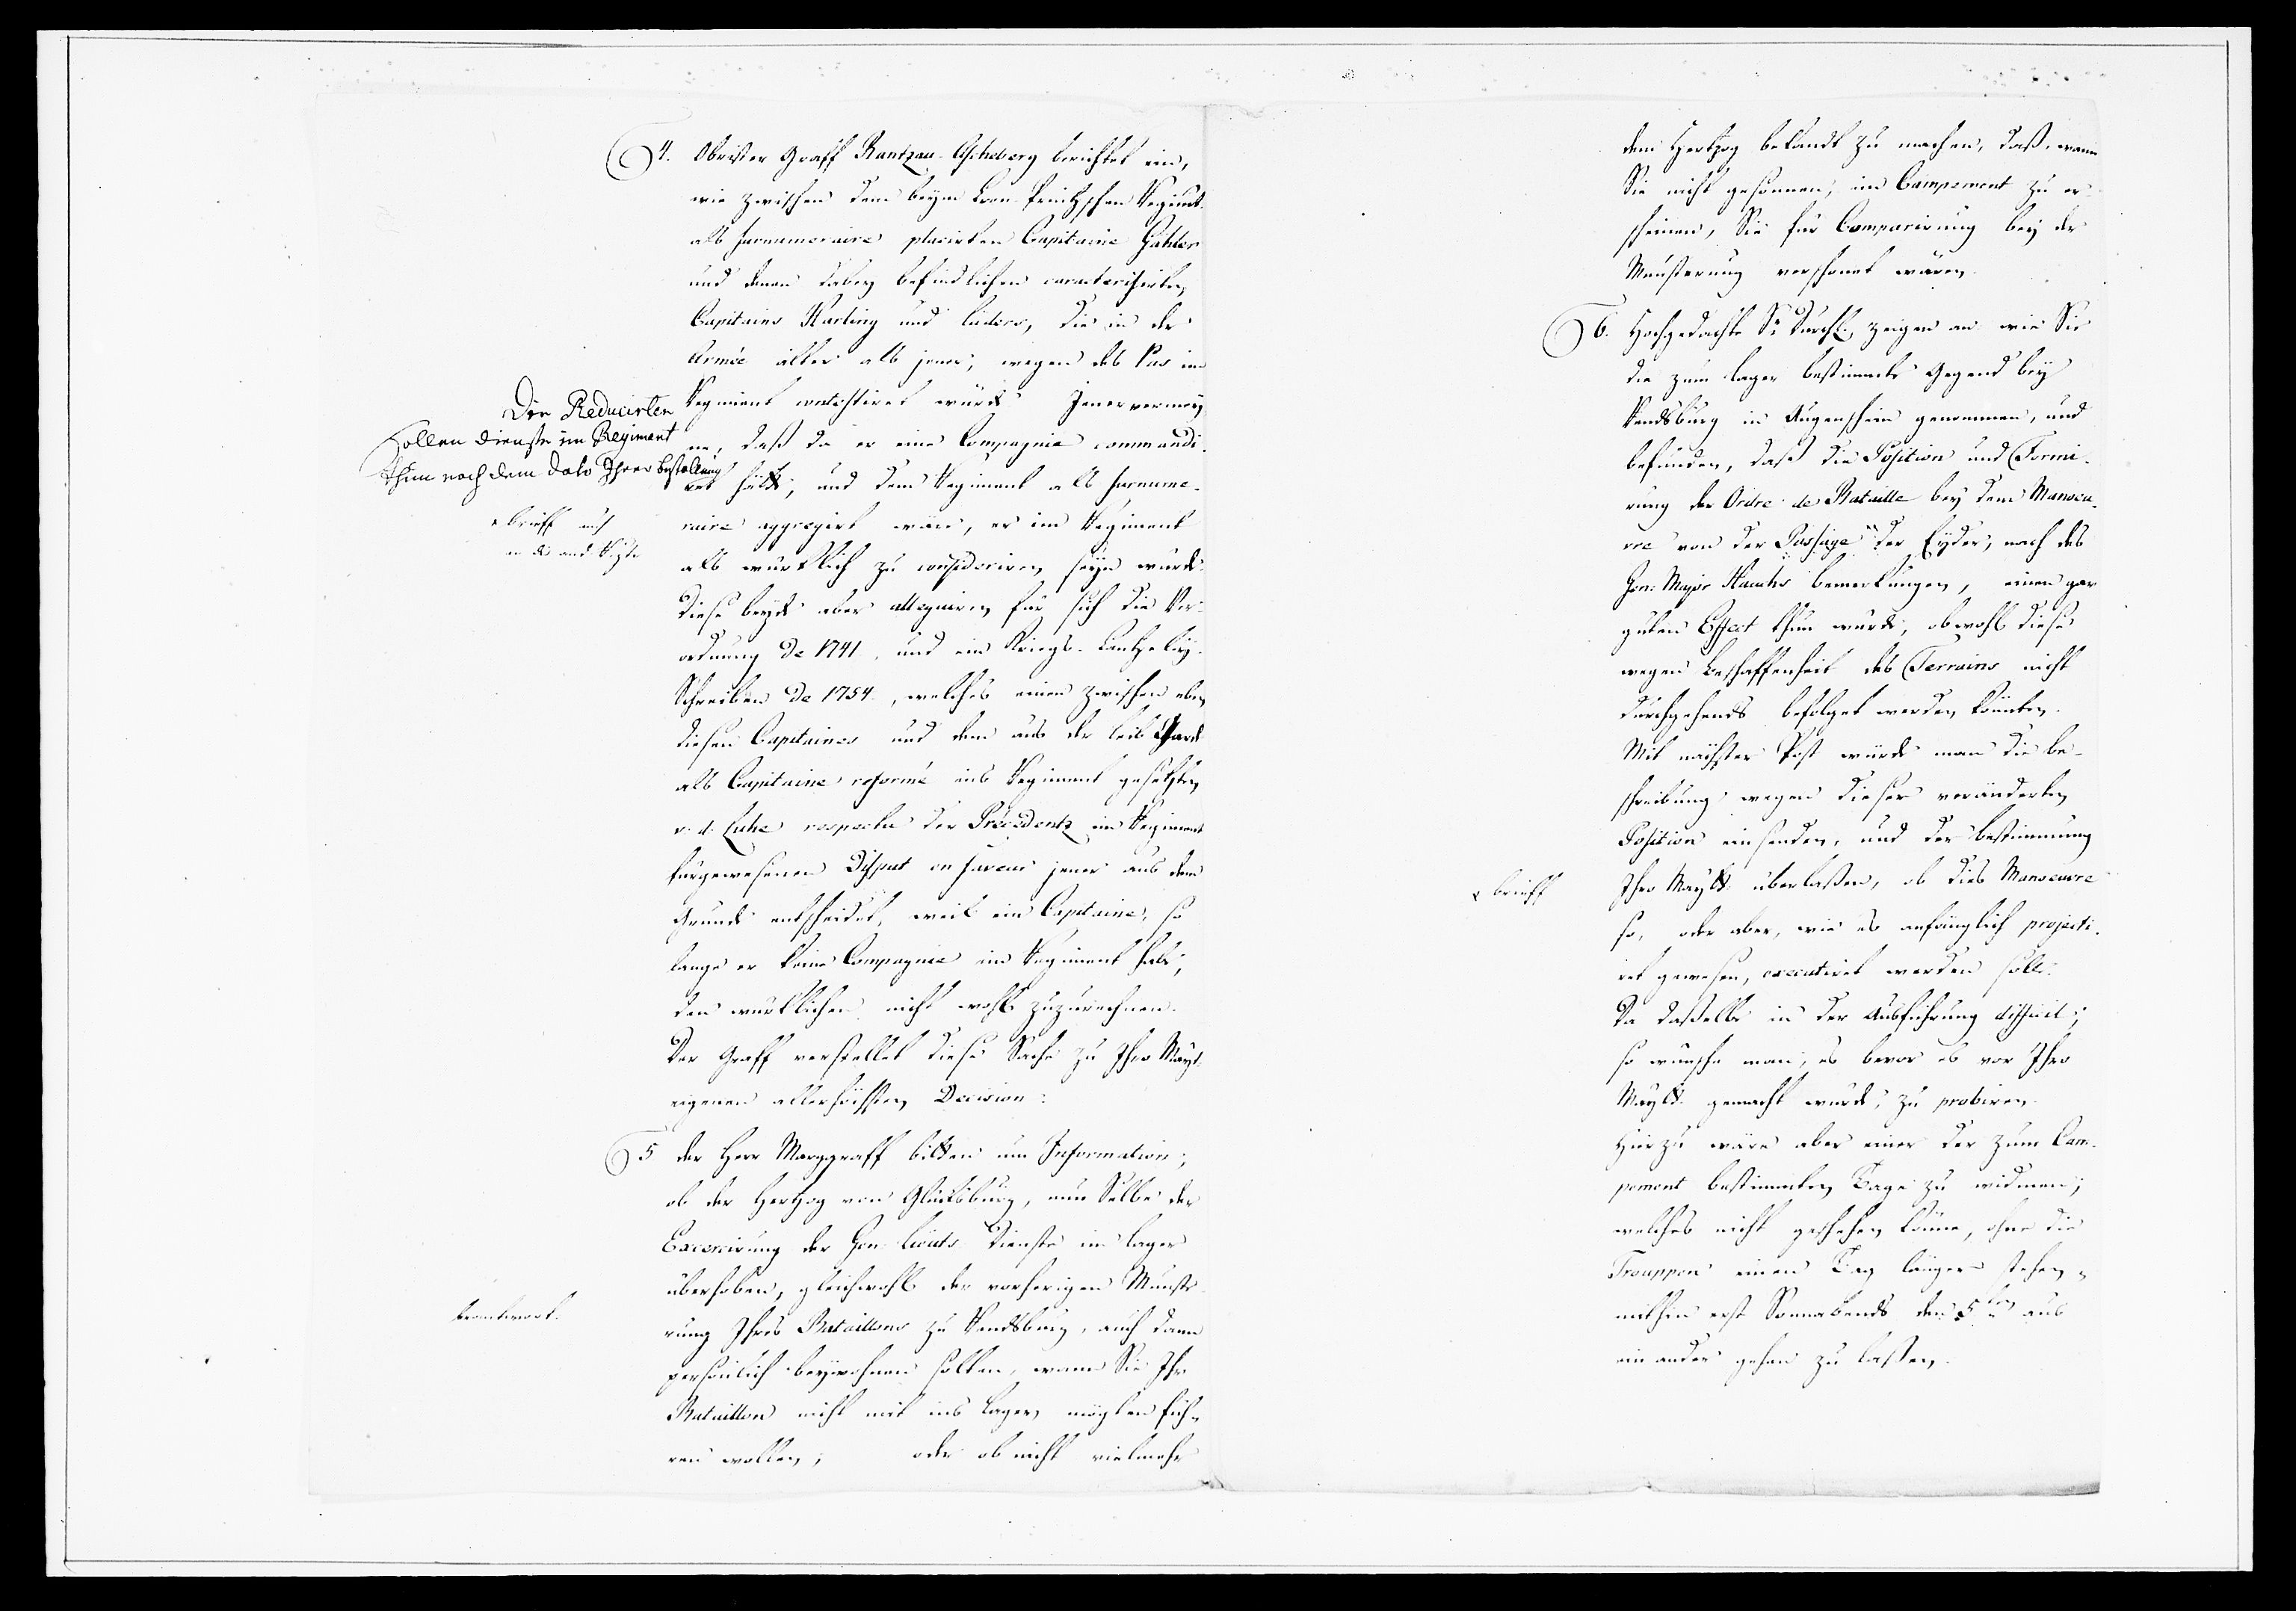 4. Obrister Graff Rantzau-Ascheberg berichtet ein,
wie zwischen dem beym Cron-Printzschen Regimt
als surnumeraire placirten Capitaine Gähler
und denen dabey befindlichen caracterisirten
Capitains Harling und Lüders, die in der
Armée älter als jener, wegen des Pas im
Regiment contestiret würde. Jener vermey-
ne, daß da er eine Compagnie commandi-
ret hätte, und dem Regiment als surnume-
raire aggregirt wäre, er im Regiment
als würklich zu consideriren seyn würde.
Diese beyde aber allegiren für sich die Ver-
ordnung de 1741, und ein Kriegs-Cantzeley-
Schreiben de 1754, welches einen zwischen eben
diesen Capitaines und dem aus der Leib Garde
als Capitaine reformé ins Regiment gesetzten
v. d. Luhe respectu der Précédentz im Regiment
fürgewesenen Disput en faveur jener aus dem
Grunde entscheidet, weil ein Capitaine, so
lange er keine Compagnie im Regiment habe,
den würklichen nicht wohl zuzurechnen.
Der Graff verstellet diese Sache zu Ihro Mayt.
eigenen allerhöchsten Decision.
Die Reducirten
sollen Dienste im Regiment
thun nach dem dato Ihrer Bestallung
brieff auch
5 der Herr Marggraff bitten um Information,
ob der Hertzog von Glücksburg, nun Selbe der
Exercirung der Gen. Lieuts Dienste im Lager
überhoben, gleichwohl der vorherigen Munste-
rung Ihres Bataillons zu Rendsburg, auch dann
persönlich beywohnen sollen, wann Sie Ihr
Bataillon nicht mit ins Lager möchten füh-
ren wollen; oder ob nicht vielmehr
beantwort.
dem Hertzog bekandt zu machen, daß, wann
Sie nicht gesonnen, im Campement zu er-
scheinen, Sie für Comparirung bey der
Munsterung verschonet wären.
6. Hochgedachte Sr. Durchl. zeigen an wie Sie
die zum Lager bestimmte Gegend bey
Rendsburg in Augenschein genommen, und
befunden, daß die Position und Formi-
rung der Ordre de Bataille bey dem Manoeu-
vre von der Passage der Eyder, nach des
Gen: Major Hauchs bemerkungen, einen gar
guten Effect thun würde, obwohl diese
wegen Beschaffenheit des Terrains nicht
durchgehends befolget werden könnten.
Mit nächster Post würde man die be-
schreibung wegen dieser veränderten
Position einsenden, und der bestimmung
Ihro Maytt. überlaßen, ob dies Manoeuvre
so, oder aber, wie es anfänglich projecti-
ret gewesen, executiret werden solle.
Da daßelbe in der Ausführung difficil,
so wünsche man, es bevor es vor Ihro
Maytt. gemacht würde, zu probiren.
Hierzu wäre aber einer der zum Cam-
pement bestimmten Tage zu widmen,
welches nicht geschehen könne, ohne die
Trouppen einen Tag länger stehen,
mithin erst Sonnabends den 5ten aus
einander gehen zu laßen.
brieff